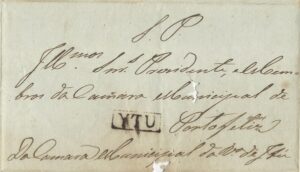 S. P.
Illmos Snrs. Presidente, e Mem
bros da Camara Municipal de
YTU
Portofeliz
Da Camara Municipal da Va. de Itú